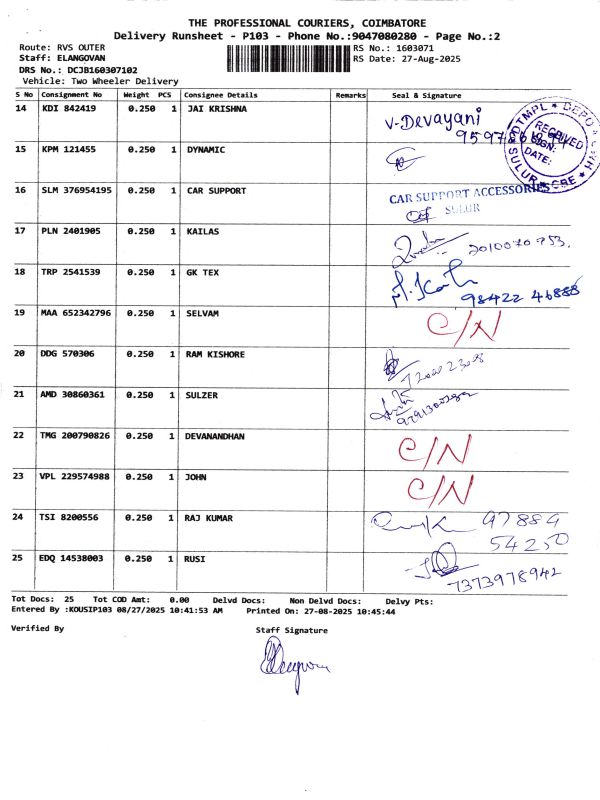 THE PROFESSIONAL COURIERS, COIMBATORE
Delivery Runsheet - P103 - Phone No.:9047080280 - Page No.:2
Route: RVS OUTER
RS No.: 1603071
Staff: ELANGOVAN
RS Date: 27-Aug-2025
DRS No.: DCJB160307102
Vehicle: Two Wheeler Delivery
S No Consignment No Weight PCS Consignee Details Remarks Seal & Signature
14 KDI 842419 0.250 1 JAI KRISHNA V-Devayani
RECEIVED
SIGN:
DATE:
SULUR CBE
15 KPM 121455 0.250 1 DYNAMIC
16 SLM 376954195 0.250 1 CAR SUPPORT CAR SUPPORT ACCESSORIES
SULUR
17 PLN 2401905 0.250 1 KAILAS
18 TRP 2541539 0.250 1 GK TEX
98422 46888
19 MAA 652342796 0.250 1 SELVAM C/N
20 DDG 570306 0.250 1 RAM KISHORE
21 AMD 30860361 0.250 1 SULZER
22 TMG 200790826 0.250 1 DEVANANDHAN C/N
23 VPL 229574988 0.250 1 JOHN C/N
24 TSI 8200556 0.250 1 RAJ KUMAR 97884
54250
25 EDQ 14538003 0.250 1 RUSI
7373978942
Tot Docs: 25 Tot COD Amt: 0.00 Delvd Docs: Non Delvd Docs: Delvy Pts:
Entered By :KOUSIP103 08/27/2025 10:41:53 AM Printed On: 27-08-2025 10:45:44
Verified By Staff Signature